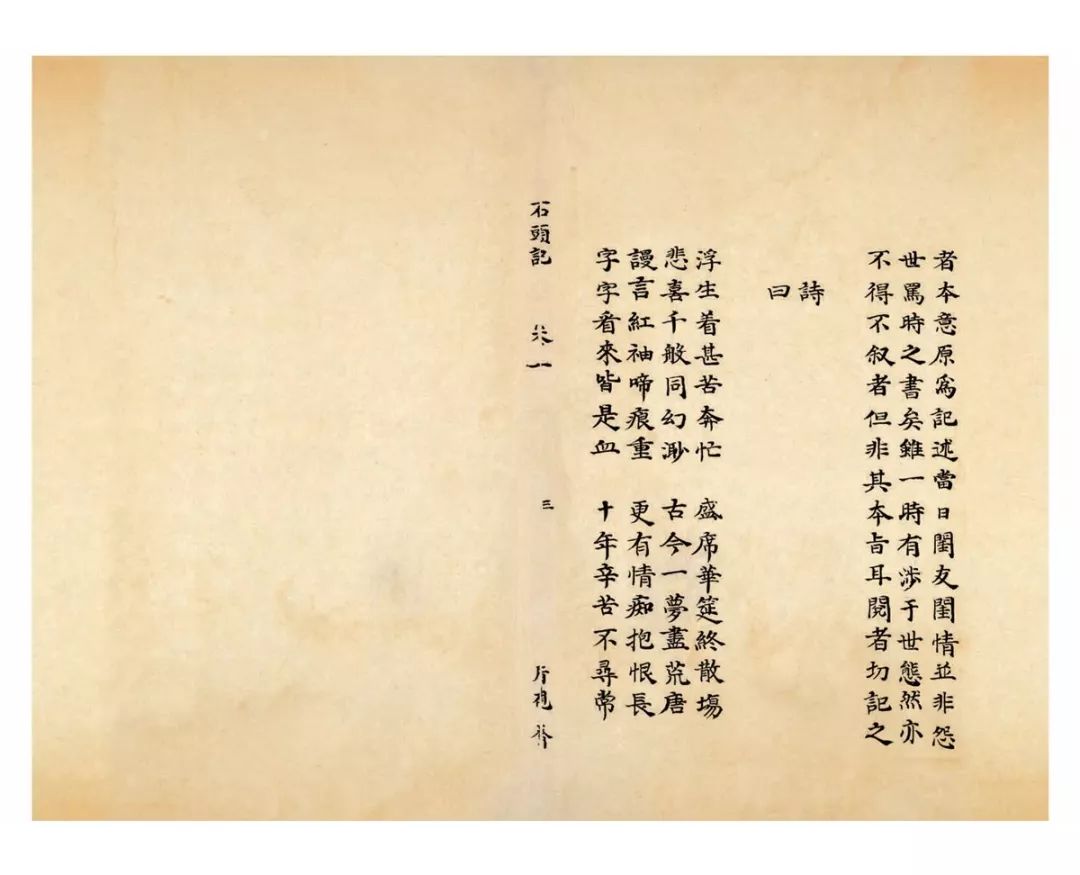 者本意原為記述當日閨友閨情並非怨
世罵時之書矣雖一時有涉于世態然亦
不得不叙者但非其本旨耳閱者切記之
詩
曰
浮生着甚苦奔忙 盛席華筵終散塲
悲喜千般同幻渺 古今一夢盡荒唐
謾言紅袖啼痕重 更有情痴抱恨長
字字看來皆是血 十年辛苦不尋常
石頭記 卷一 三 脂硯齋